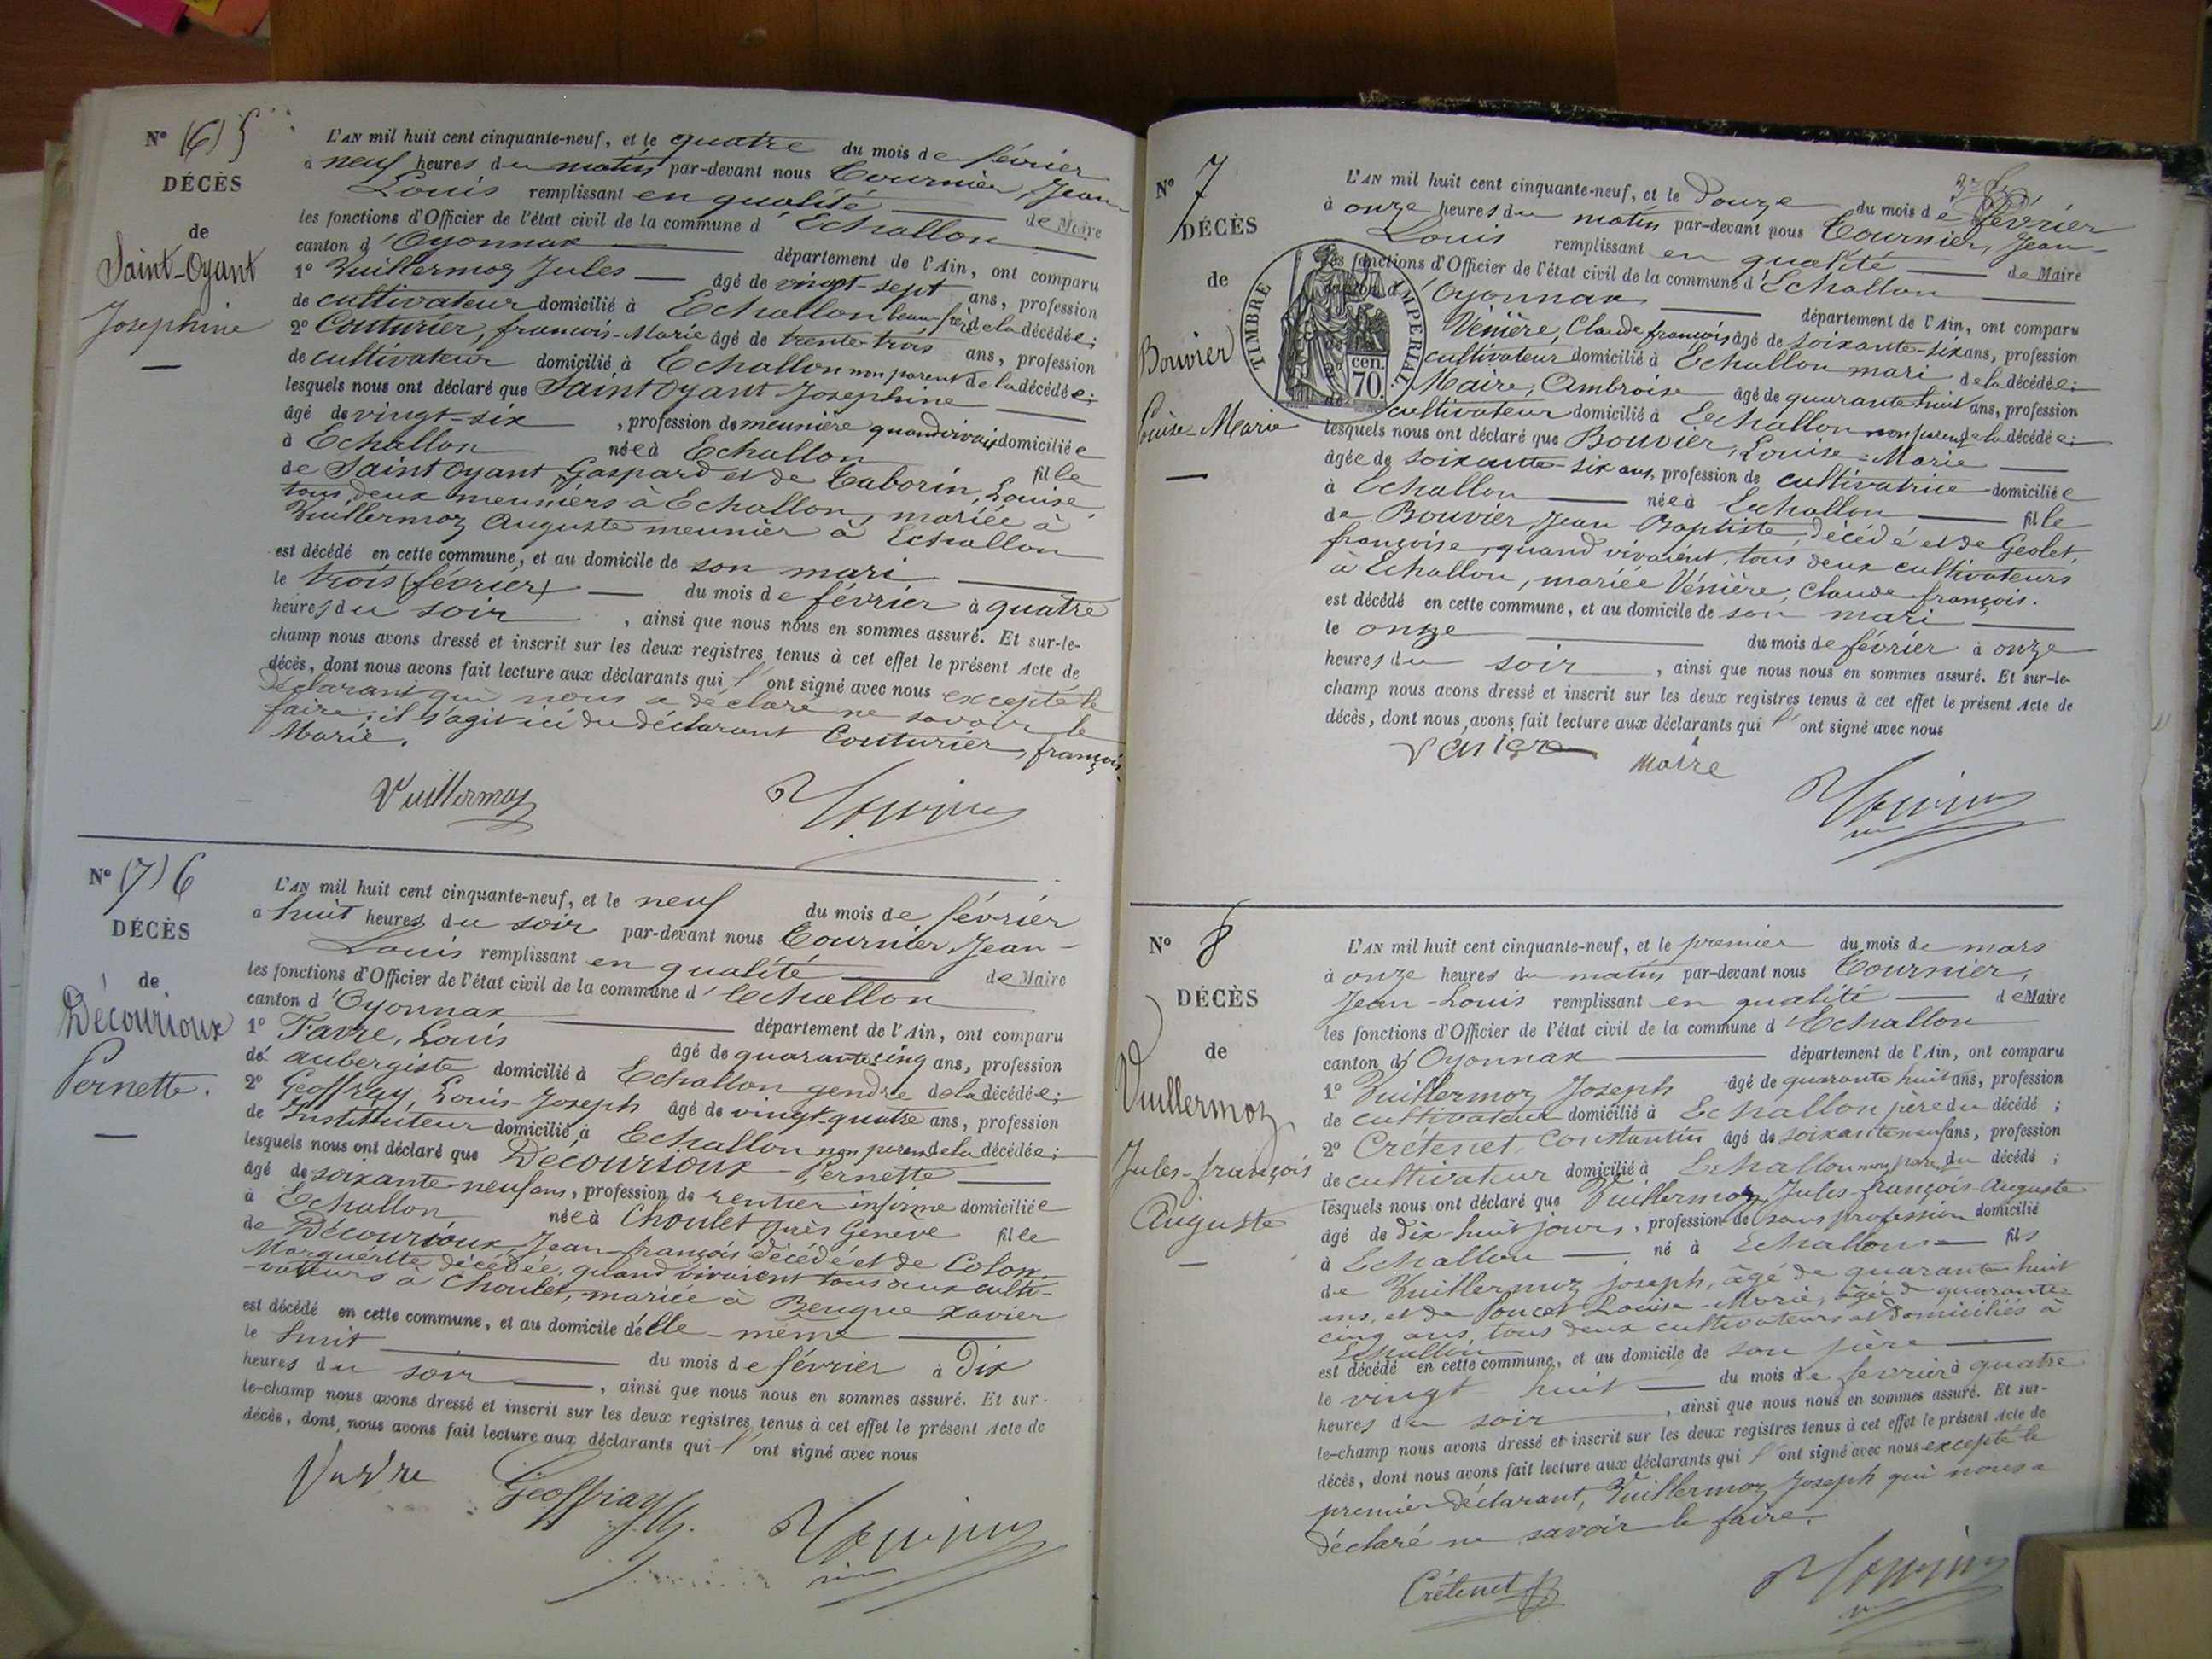 N° (6) 5
DÉCÈS
de
Saint-Oyant
Josephine
L'AN mil huit cent cinquante-neuf, et le quatre du mois de février
à neuf heures du matin par-devant nous Tournier, Jean-
Louis remplissant en qualité de Maire
les fonctions d'Officier de l'état civil de la commune d'Echallon
canton d'Oyonnax département de l'Ain, ont comparu
1° Vuillermoz Jules âgé de vingt-sept ans, profession
de cultivateur domicilié à Echallon beau-frère de la décédée;
2° Couturier, françois-Marie âgé de trente-trois ans, profession
de cultivateur domicilié à Echallon non parent de la décédée;
lesquels nous ont déclaré que Saint Oyant Josephine
âgé de vingt-six , profession de meunière quand vivait domiciliée
à Echallon née à Echallon fille
de Saint Oyant, Gaspard et de Taborin, Louise,
tous deux meuniers à Echallon, mariée à
Vuillermoz Auguste meunier à Echallon
est décédé en cette commune, et au domicile de son mari
le trois (février) du mois de février à quatre
heures du soir , ainsi que nous nous en sommes assuré. Et sur-le-
champ nous avons dressé et inscrit sur les deux registres tenus à cet effet le présent Acte de
décès, dont nous avons fait lecture aux déclarants qui l'ont signé avec nous excepté le
déclarant qui nous a déclaré ne savoir le
faire; il s'agit ici du déclarant Couturier, françois
Marie.
Vuillermoz
N° (7) 6
DÉCÈS
de
Décourioux
Pernette.
L'AN mil huit cent cinquante-neuf, et le neuf du mois de février
à huit heures du soir par-devant nous Tournier, Jean-
Louis remplissant en qualité de Maire
les fonctions d'Officier de l'état civil de la commune d'Echallon
canton d'Oyonnax département de l'Ain, ont comparu
1° Favre, Louis âgé de quarante-cinq ans, profession
de aubergiste domicilié à Echallon gendre de la décédée;
2° Geoffray, Louis-Joseph âgé de vingt-quatre ans, profession
de Instituteur domicilié à Echallon non parent de la décédée;
lesquels nous ont déclaré que Décourioux Pernette
âgé de soixante-neuf ans, profession de rentier infirme domiciliée
à Echallon née à Choulet près Genève fille
de Décourioux, Jean-françois décédé et de Colon,
Marguerite décédée, quand vivaient tous deux culti-
-vateurs à Choulet, mariée à Bengue Xavier
est décédé en cette commune, et au domicile d'elle-même
le huit du mois de février à dix
heures du soir , ainsi que nous nous en sommes assuré. Et sur-
le-champ nous avons dressé et inscrit sur les deux registres tenus à cet effet le présent Acte de
décès, dont nous avons fait lecture aux déclarants qui l'ont signé avec nous
favre Geoffray
N° 7
DÉCÈS
de
Bouvier
Louise-Marie
TIMBRE IMPERIAL
70 cen.
L'AN mil huit cent cinquante-neuf, et le Douze du mois de février
à onze heures du matin par-devant nous Tournier, Jean-
Louis remplissant en qualité de Maire
les fonctions d'Officier de l'état civil de la commune d'Echallon
canton d'Oyonnax département de l'Ain, ont comparu
Vénière, Claude françois âgé de soixante-six ans, profession
cultivateur domicilié à Echallon mari de la décédée;
Maire, Ambroise âgé de quarante huit ans, profession
de cultivateur domicilié à Echallon non parent de la décédée;
lesquels nous ont déclaré que Bouvier, Louise-Marie
âgée de soixante-six ans, profession de cultivatrice domiciliée
à Echallon née à Echallon fille
de Bouvier, Jean-Baptiste, décédé et de Geolet,
françoise, quand vivaient, tous deux cultivateurs
à Echallon, mariée Vénière, Claude-françois.
est décédé en cette commune, et au domicile de son mari
le onze du mois de février à onze
heures du soir , ainsi que nous nous en sommes assuré. Et sur-le-
champ nous avons dressé et inscrit sur les deux registres tenus à cet effet le présent Acte de
décès, dont nous avons fait lecture aux déclarants qui l'ont signé avec nous
Vénière Maire
N° 8
DÉCÈS
de
Vuillermoz
Jules-françois
Auguste
L'AN mil huit cent cinquante-neuf, et le premier du mois de mars
à onze heures du matin par-devant nous Tournier,
Jean-Louis remplissant en qualité de Maire
les fonctions d'Officier de l'état civil de la commune d'Echallon
canton d'Oyonnax département de l'Ain, ont comparu
1° Vuillermoz Joseph âgé de quarante huit ans, profession
de cultivateur domicilié à Echallon père du décédé ;
2° Crétenet Constantin âgé de soixante neuf ans, profession
de cultivateur domicilié à Echallon non parent du décédé ;
lesquels nous ont déclaré que Vuillermoz, Jules-françois-Auguste
âgé de dix-huit jours, profession de (sans profession domicilié
à Echallon né à Echallon fils
de Vuillermoz Joseph, âgé de quarante huit
ans, et de Poncet Louise-Marie, âgée de quarante-
cinq ans, tous deux cultivateurs et domiciliés à
Echallon
est décédé en cette commune, et au domicile de son père
le vingt huit du mois de fevrier à quatre
heures du soir , ainsi que nous nous en sommes assuré. Et sur-
le-champ nous avons dressé et inscrit sur les deux registres tenus à cet effet le présent Acte de
décès, dont nous avons fait lecture aux déclarants qui l'ont signé avec nous excepté le
premier déclarant, Vuillermoz Joseph qui nous a
déclaré ne savoir le faire.
Crétenet